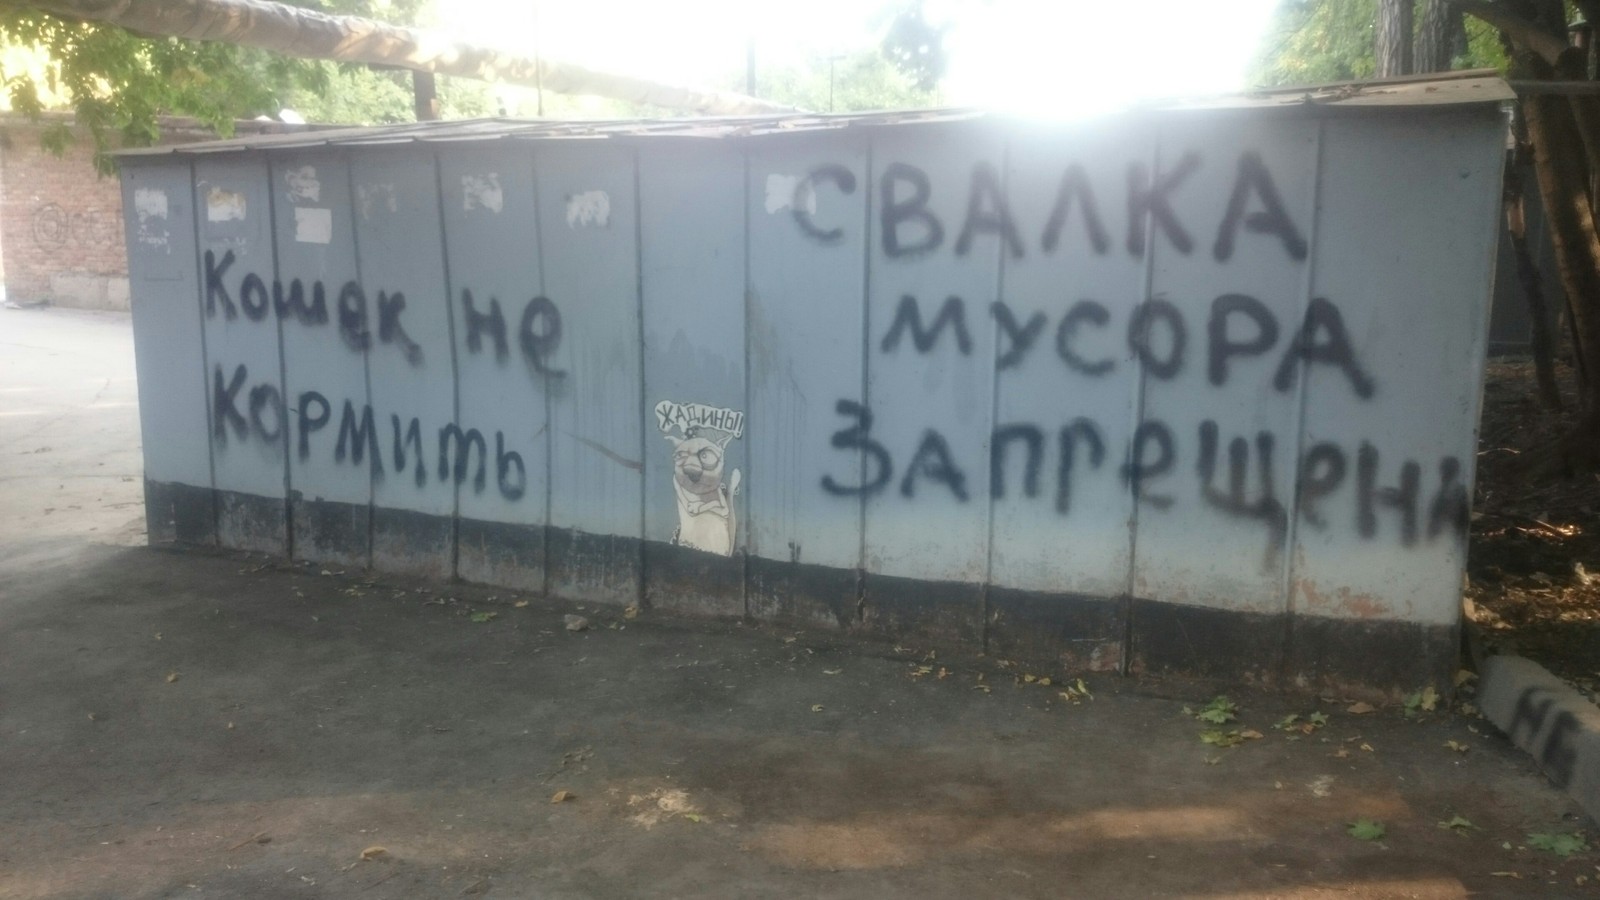 Кошек не
Кормить
ЖАДИНЫ!
СВАЛКА
МУСОРА
Запрещена
НЕ